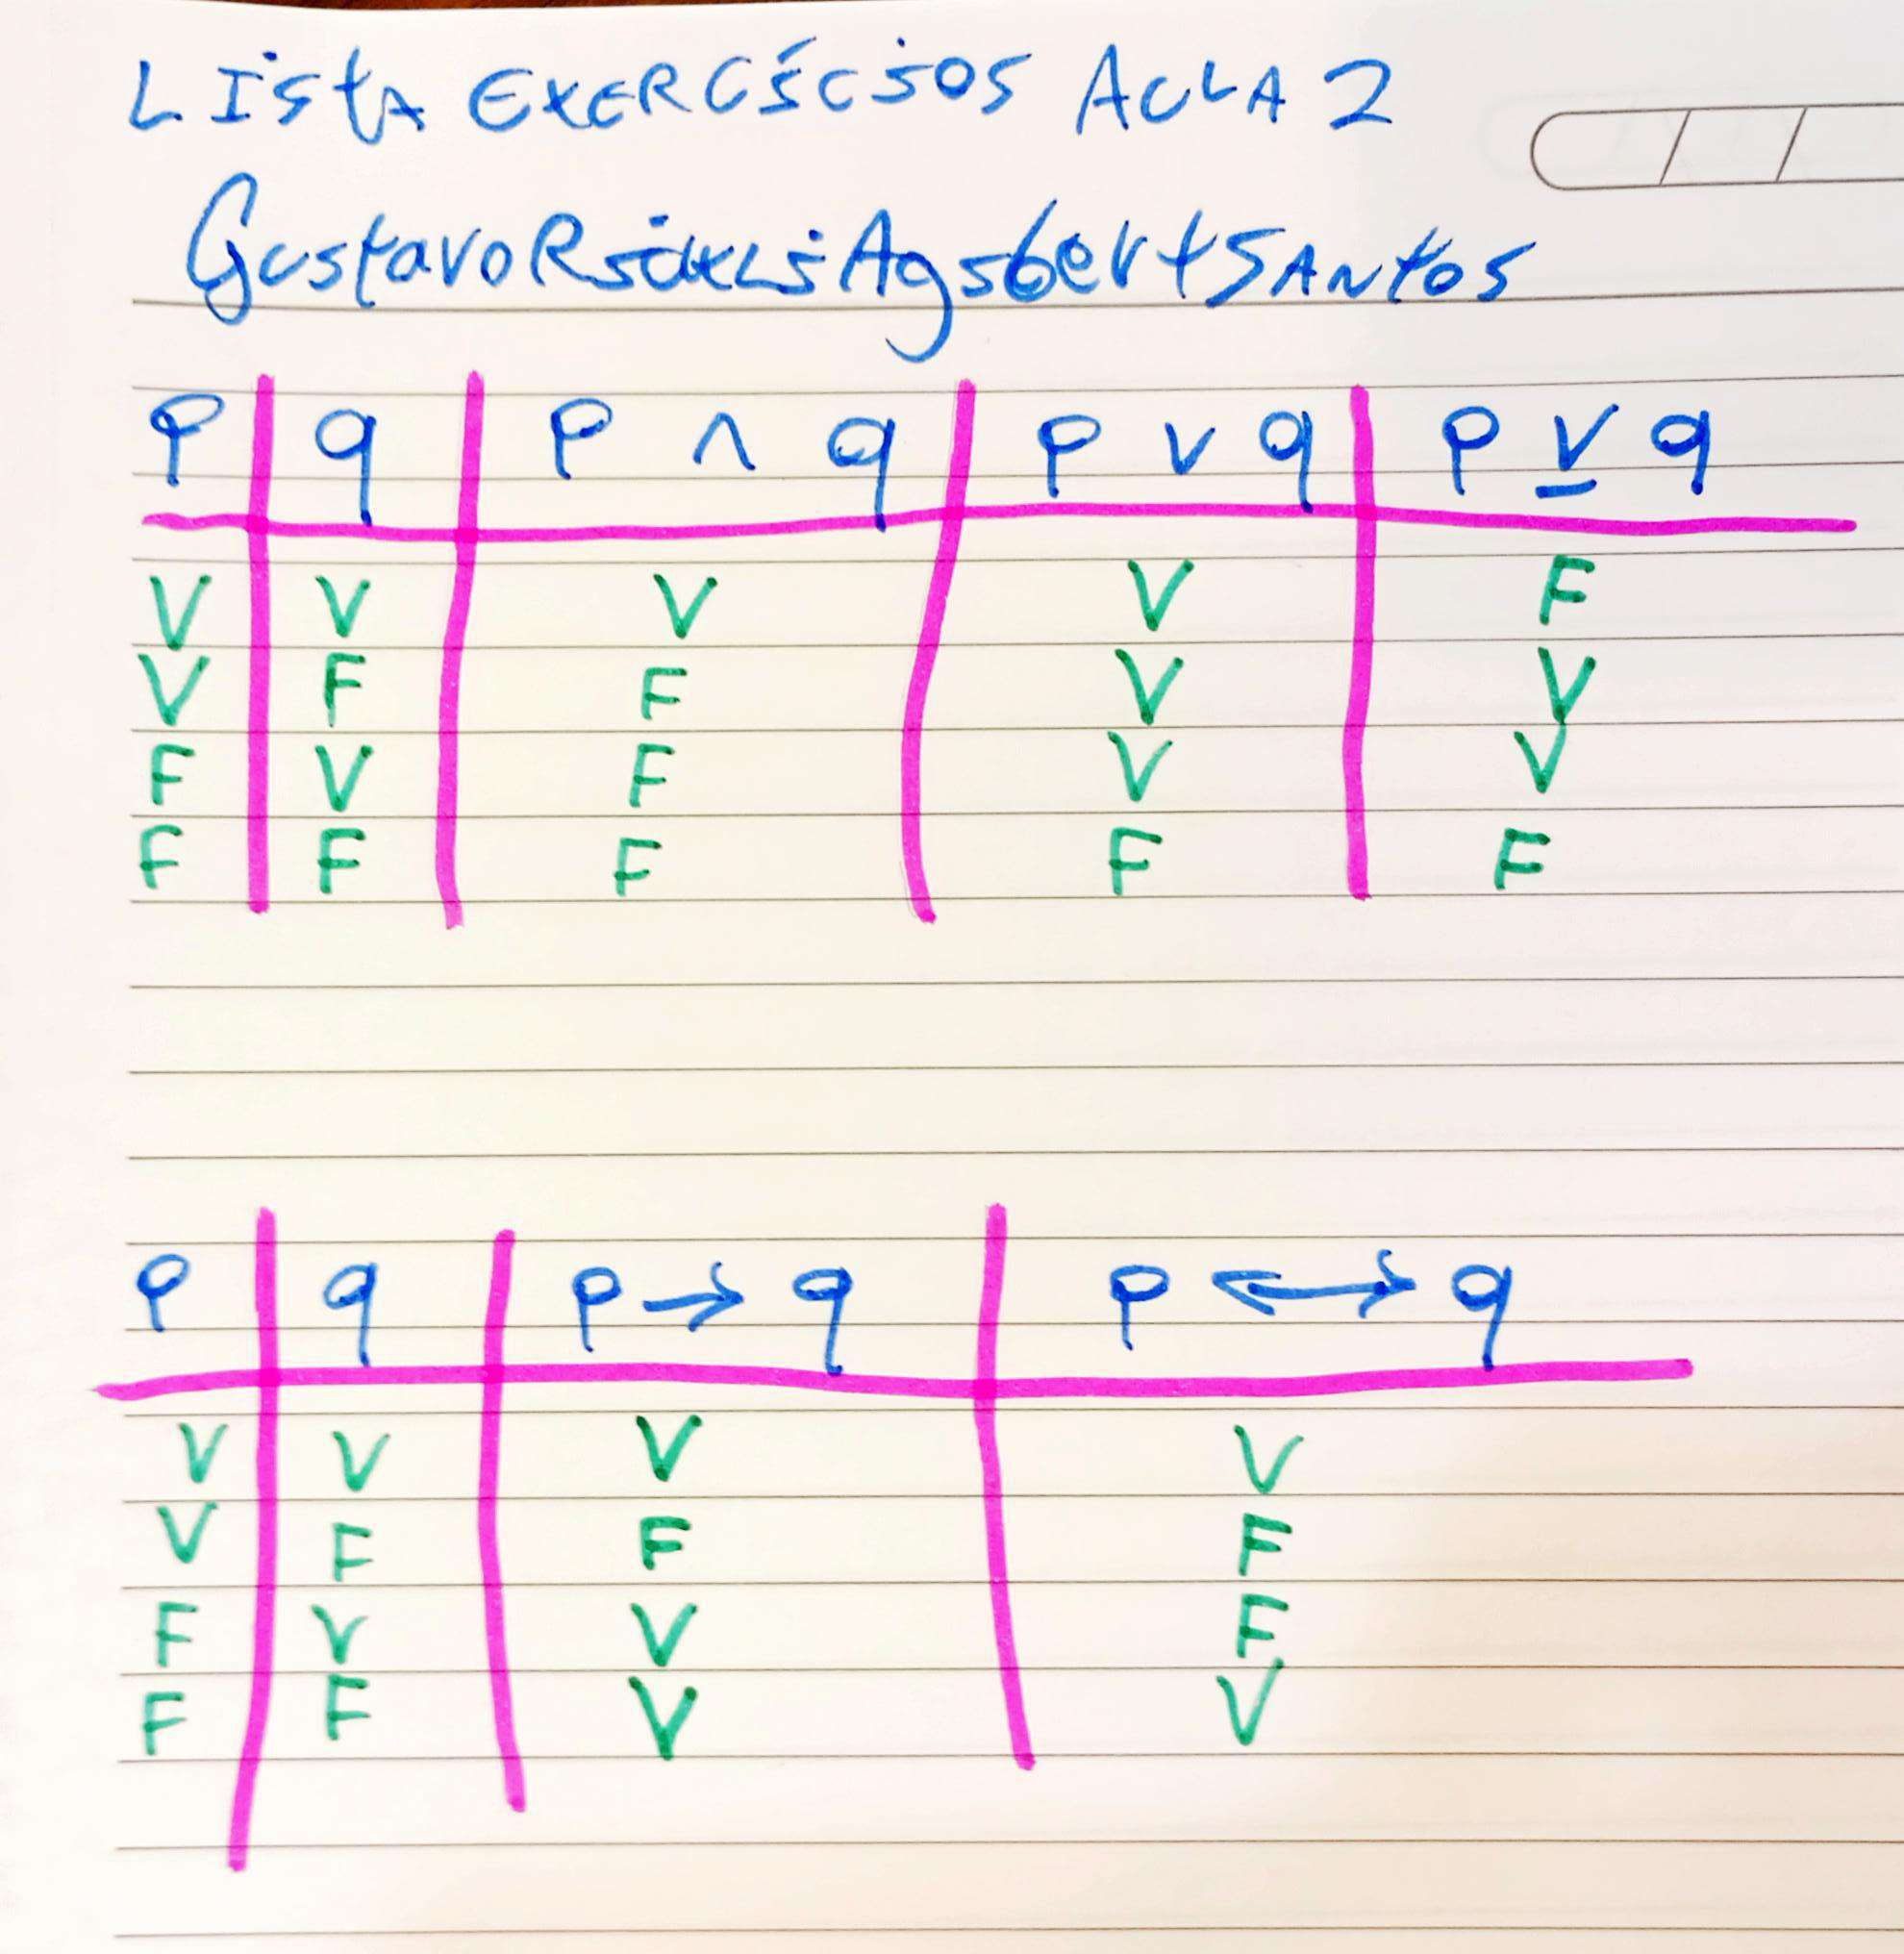 Lista EXERCíCiOS AULA 2
Gustavo Agibert SANtOS
P q P ∧ q P v q P v q
V V V V F
V F F V V
F V F V V
F F F F F
P q P → q P ↔ q
V V V V
V F F F
F V V F
F F V V